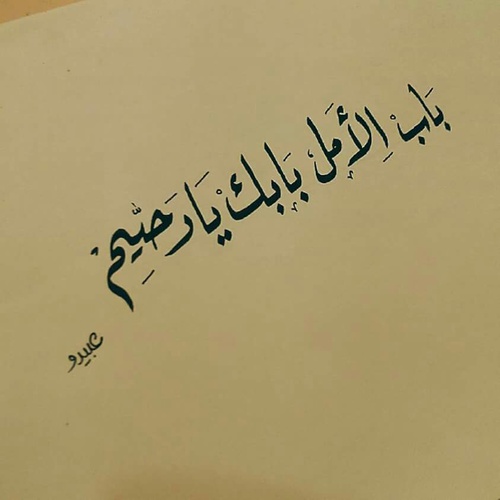 باب الأمل بابك يا رحيم
عبيدو